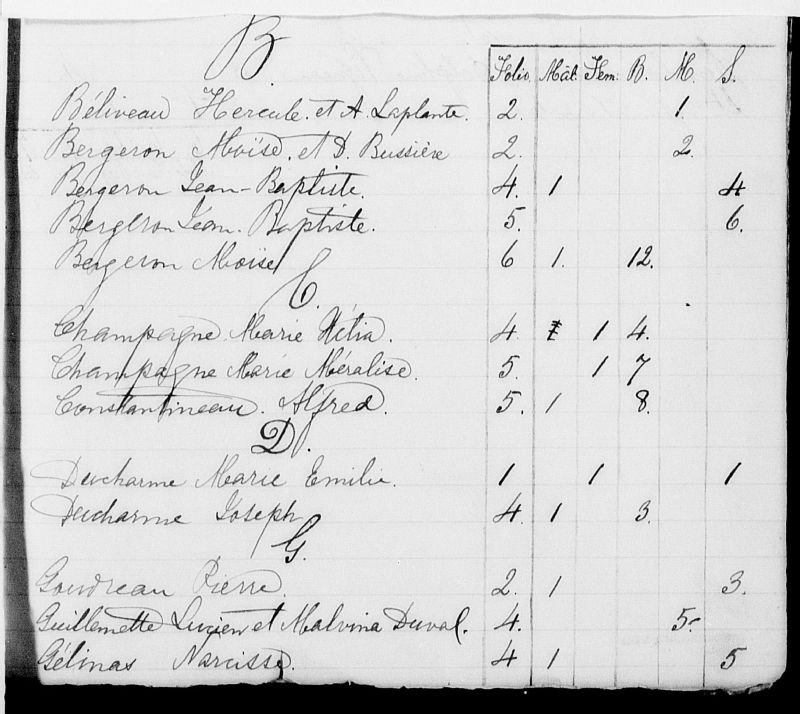 B
Folio. Mâl. Fem. B. M. S.
Béliveau Hercule. et A. Laplante. 2. 1.
Bergeron Moïse. et D. Bussière 2. 2.
Bergeron Jean-Baptiste. 4. 1 4
Bergeron Jean. Baptiste. 5. 6.
Bergeron Moïse 6 1. 12.
C.
Champagne Marie Délia. 4. 1 4.
Champagne Marie Méralise. 5. 1 7
Constantineau. Alfred. 5. 1 8.
D.
Ducharme Marie Emilie. 1 1 1
Ducharme Joseph 4. 1 3.
G.
Goudreau Pierre. 2. 1 3.
Guillemette Lucien et Malvina Duval. 4. 5.
Gélinas Narcisse. 4 1 5